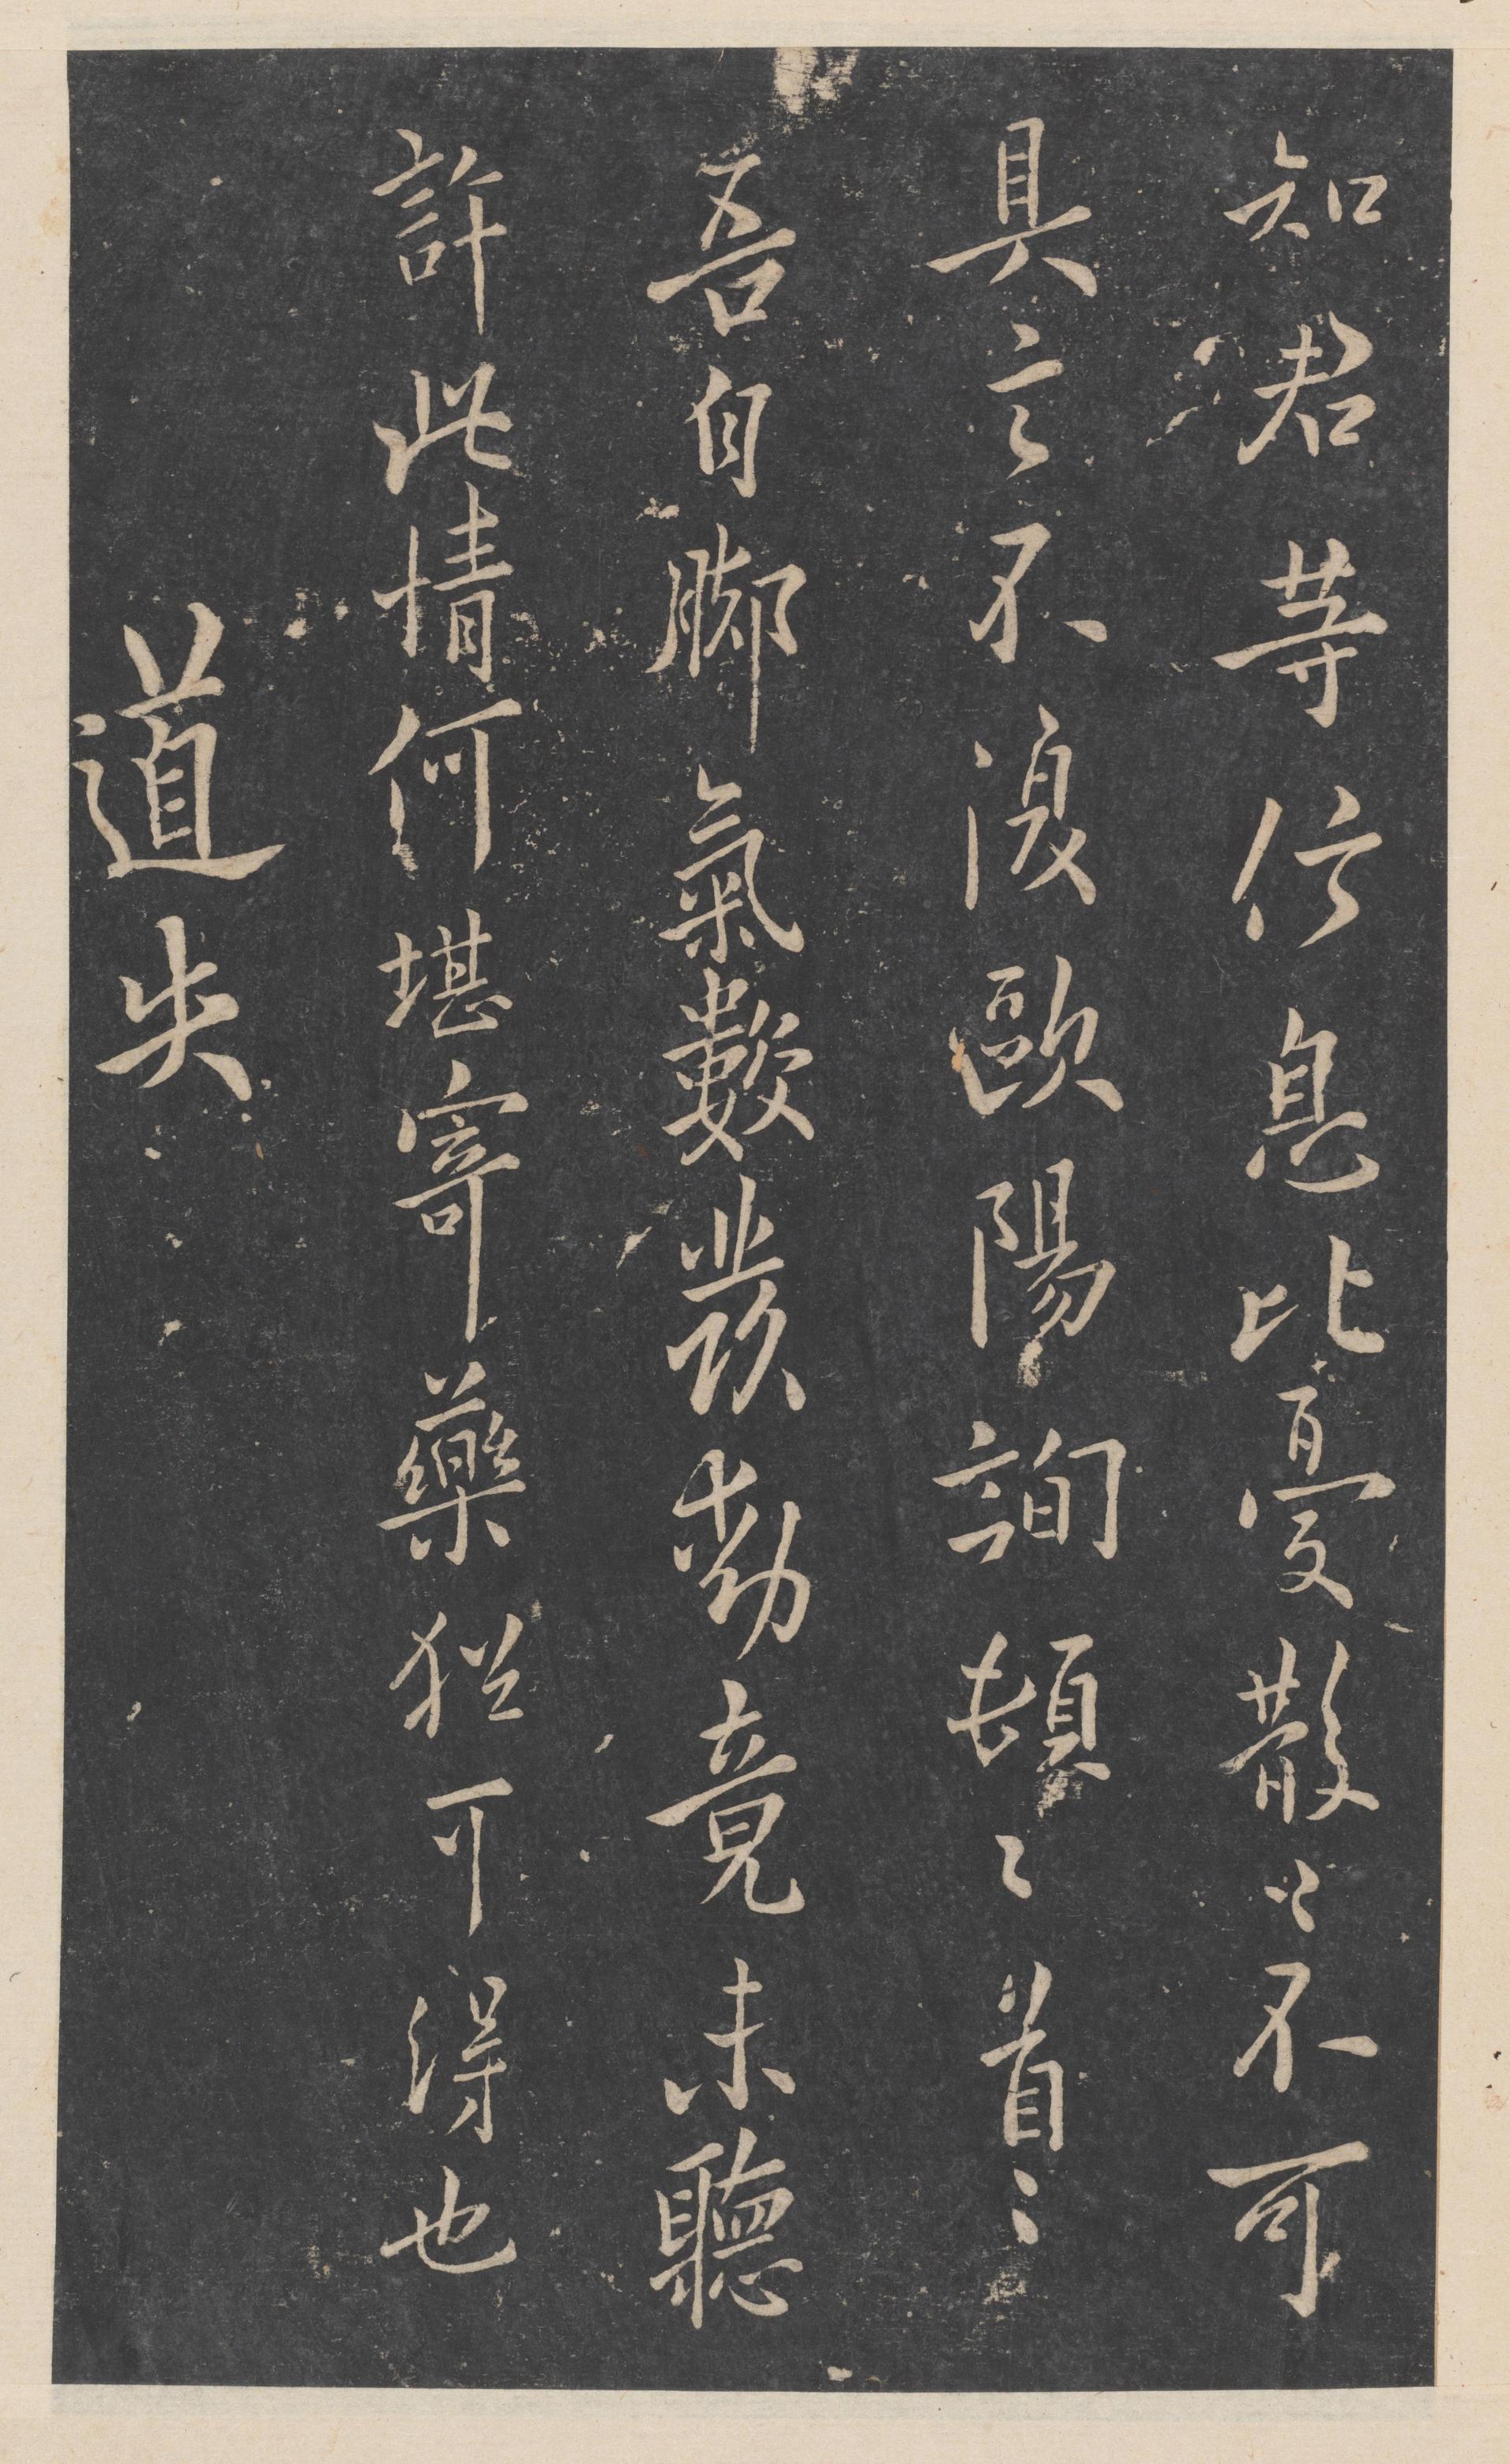 知君等信息比憂散〻不可
具言不復歐陽詢頓〻首〻
吾自腳氣數發動竟未聽
許此情何堪寄藥猶可得也
道失